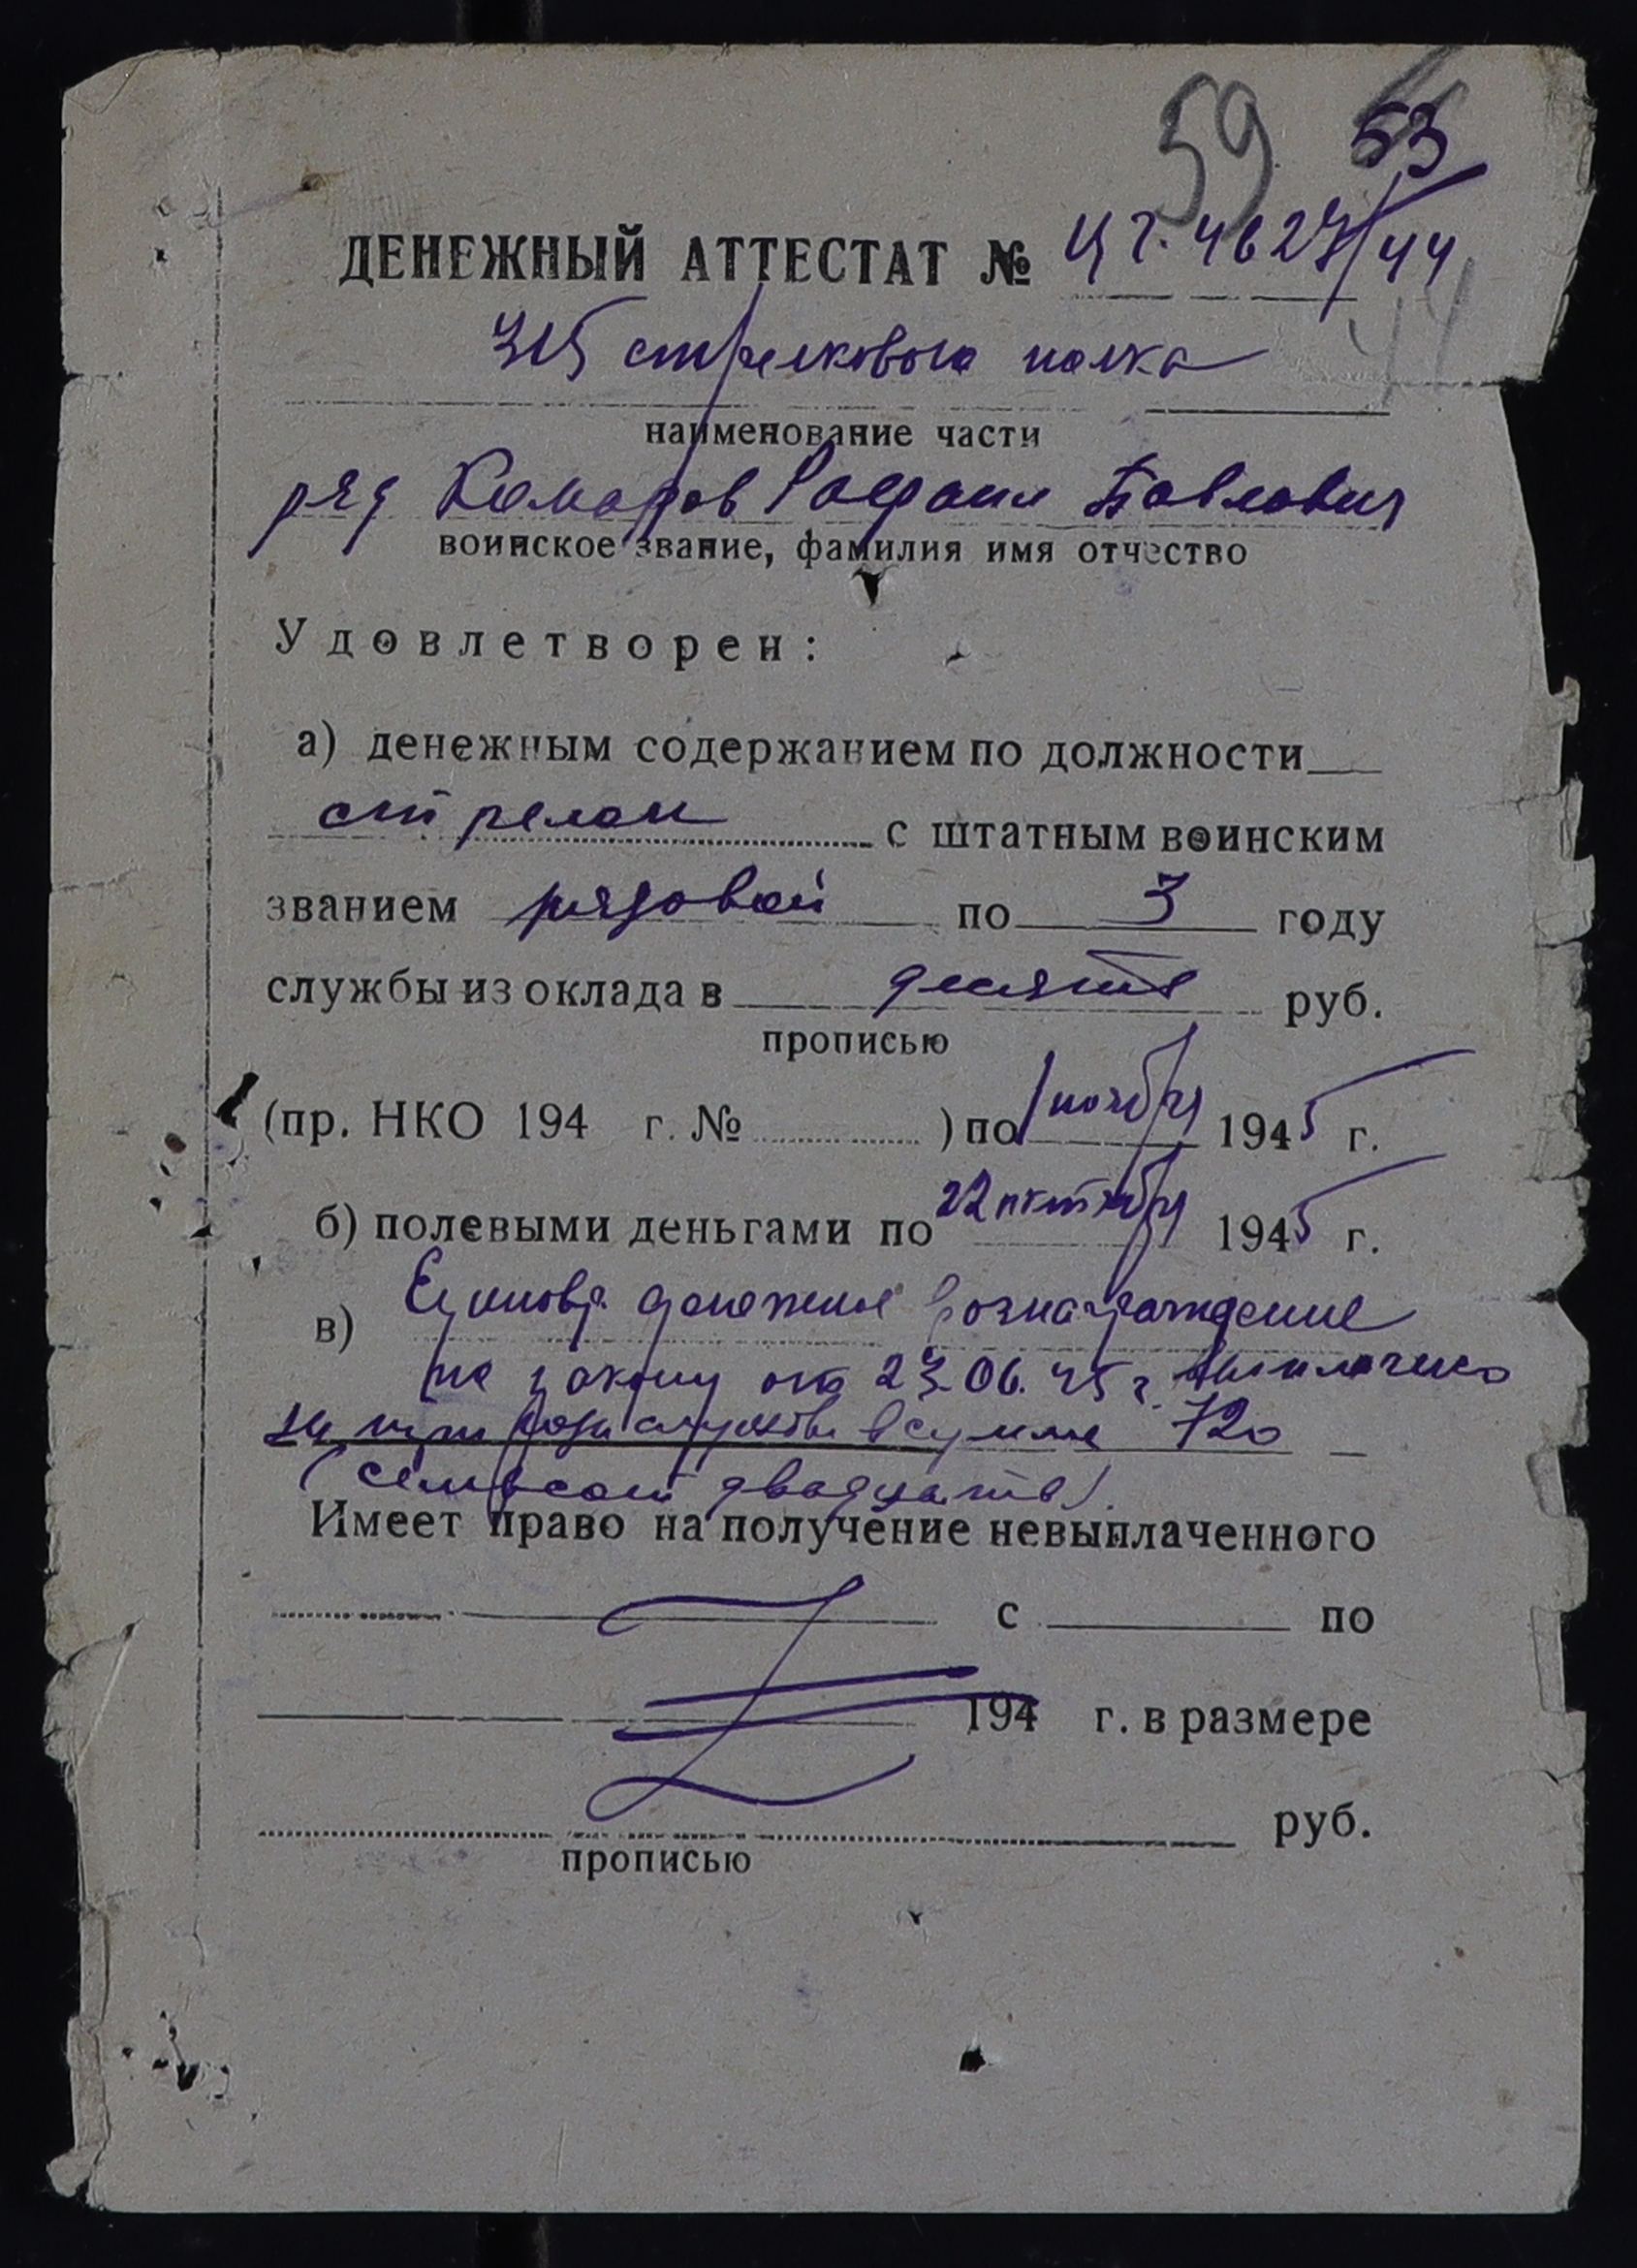 59 53
ДЕНЕЖНЫЙ АТТЕСТАТ № ЦГ. 4627/44
315 стрелкового полка
наименование части
ряд Комаров Павлович
воинское звание, фамилия имя отчество
Удовлетворен:
а) денежным содержанием по должности
стрелок с штатным воинским
званием рядовой по 3 году
службы из оклада в десять руб.
прописью
(пр. НКО 194 г. № ) по 1 ноября 1945 г.
б) полевыми деньгами по 22 октября 1945 г.
в) Единовр. денежное вознаграждение
по закону от 23.06.45 г. выплачено
за службы в сумме 720
(семьсот двадцать).
Имеет право на получение невыплаченного
с по
194 г. в размере
руб.
прописью